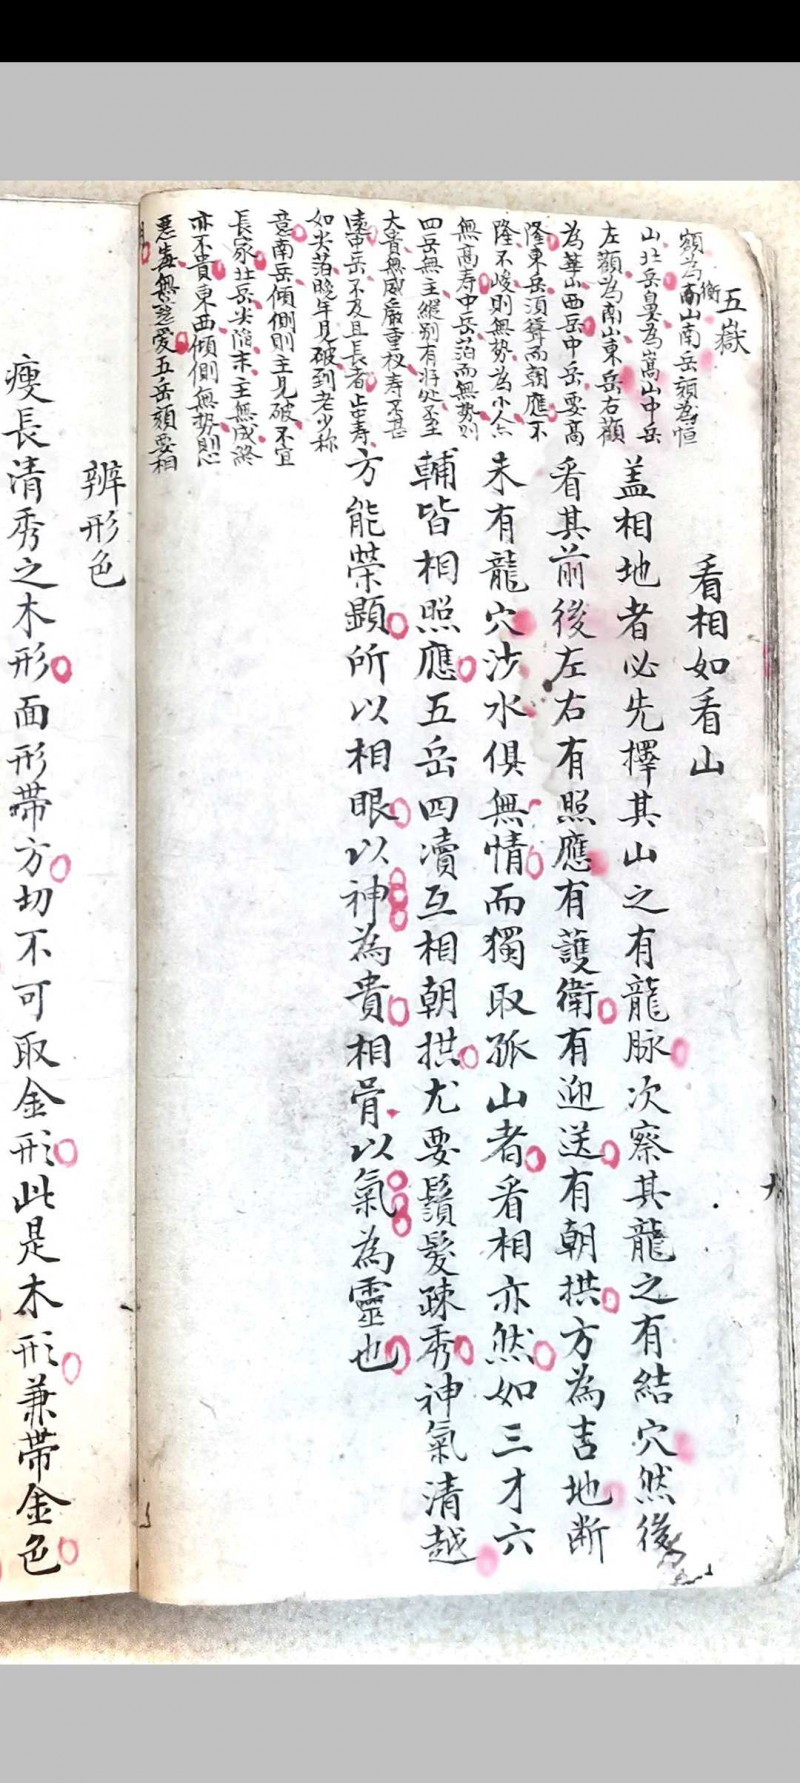 五嶽
額為衡山南岳頦為恒
山北岳鼻為嵩山中岳
左顴為南山東岳右顴
為華山西岳中岳要高
隆東岳須聳而朝應不
隆不峻則無勢為小人亦
無高寿中岳薄而無勢則
四岳無主縱別有好處不至
大貴無威嚴重权寿不甚
遠中岳不及且長者止中寿
如尖薄晚年見破到老少称
意南岳傾側則主見破不宜
長家北岳尖陷末主無成終
亦不貴東西傾側無勢則心
惡毒無慈愛五岳頦要相
看相如看山
盖相地者必先擇其山之有龍脉次察其龍之有結穴然後
看其前後左右有照應有護衛有迎送有朝拱方為吉地断
未有龍穴沙水俱無情而獨取孤山者看相亦然如三才六
輔皆相照應五岳四瀆互相朝拱尤要鬚髮疎秀神氣清越
方能榮顕所以相眼以神為貴相骨以氣為靈也
辨形色
瘦長清秀之木形面形帶方切不可取金形此是木形兼帶金色